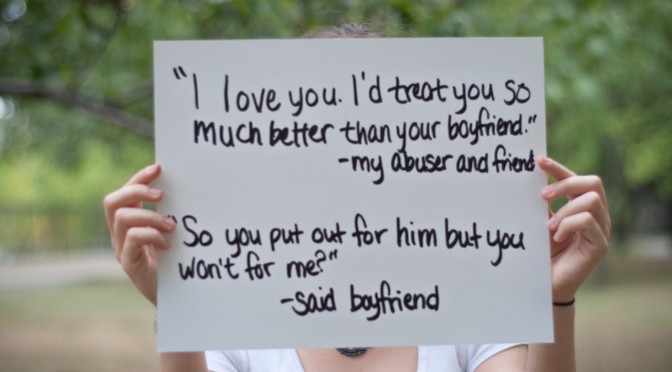 "I love you. I'd treat you so
much better than your boyfriend."
-my abuser and friend
"So you put out for him but you
won't for me?"
-said boyfriend